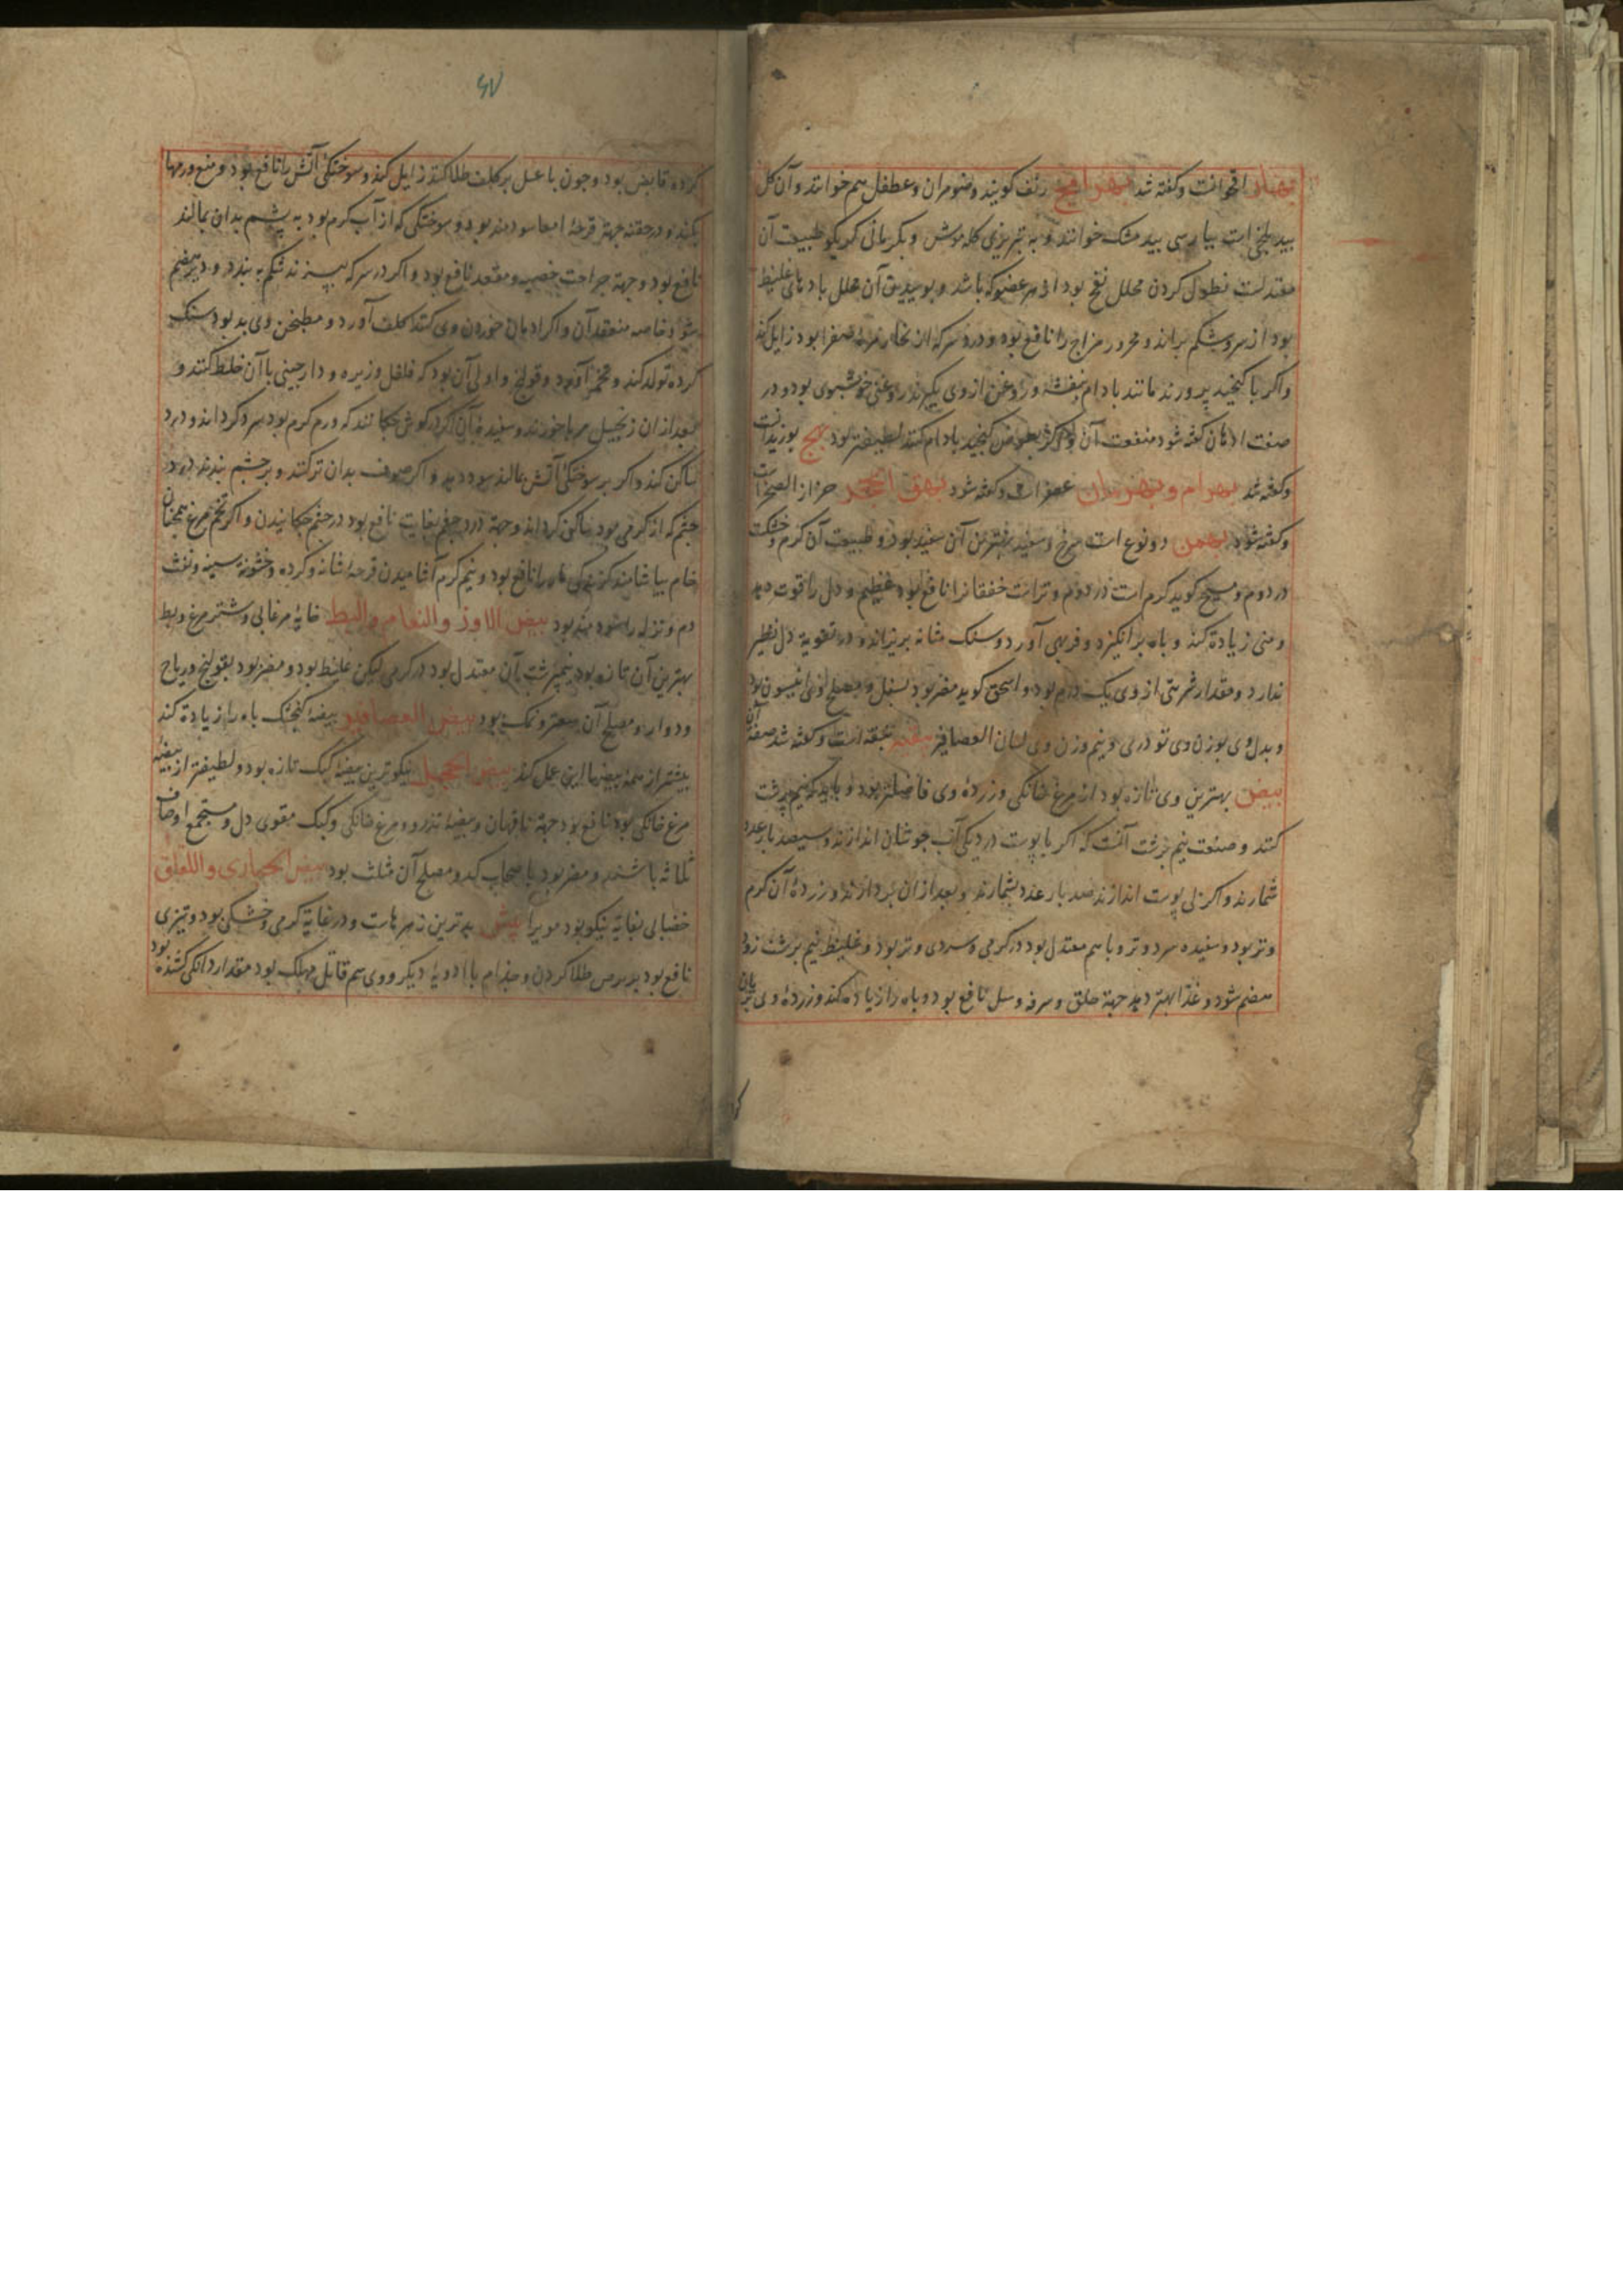 بهار اقحوانست و کفته شد بهرامج رنف کویند و ضومران و عطفل هم خوانند و آن کل
بید بلخی است بپارسی بید مشک خوانند و به تبریزی کله موش و بکرمانی کربکو طبیعت آن
معتدلست نطول کردن محلل نفخ بود از هر عضوکه باشد و بوییدن آن محلل بادهای غلیظ
بود از سر و شکم براند و محرور مزاج را نافع بود و درد سر که از بخار مرهٔ صفرا بود زایل کند
و اکر با کنجید پرورند مانند بادام بنفشه و روغن از وی بکیرند روغنی خوشبوی بود و در
صفت ادهان کفته شود منفعت آن و اکر بعوض کنجید بادام کنند لطیفتر بود بهج بوزیدانست
و کفته شد بهرام و بهرمان عصفر است و کفته شود بهق الحجر حزاز الصخر است
و کفته شود بهمن دو نوع است سرخ و سفید بهترین آن سفید بود و طبیعت آن کرم و خشکست
در دوم و مسیح کوید کرم است در دوم و تر است خفقانرا نافع بود عظیم و دل را قوت دهد
و منی زیادة کند و باه برانکیزد و فربهی آورد و سنک مثانه بریزاند و در تقویة دل نظیر
ندارد و مقدار شربتی از وی یک درم بود و اسحق کوید مضر بود بسفل و مصلح وی انیسون بود
و بدل وی بوزن وی تودری و نیم وزن وی لسان العصافیر بهقه است و کفته شد صفة آن
بیض بهترین وی تازه بود از مرغ خانکی و زردهٔ وی فاضلتر بود و باید که نیم برشت
کنند و صنعت نیم برشت آنست که اکر با پوست در دیکی آب جوشان اندازند و سیصد بار عدد
شمارند و اکر بی پوست اندازند صد بار عدد بشمارند و بعد از ان بردارند و زردهٔ آن کرم
و تر بود و سفیده سرد و تر و با هم معتدل بود در کرمی و سردی و تر بود و غلیظ نیم برشت زود
هضم شود و غذا بهتر دهد جهة حلق و سرفه و سل نافع بود و باه را زیاده کند و زردهٔ وی بریان
۶۷
کرده قابض بود و جون با عسل بر کلف طلا کنند زایل کند و سوختکی آتش را نافع بود و منع ورمها
بکند و در حقنه جهة قرحهٔ امعا سودمند بود و سوختکی که از آب کرم بود به پشم بدان بمالند
نافع بود و جهة جراحت خصیه و مقعد نافع بود و اکر در سرکه بپزند شکم به بندد و دیر هضم
شود خاصه منعقد آن و اکر ادمان خوردن وی کنند کلف آورد و مطبخن وی بد بود سنک
کرده تولد کند و تخمه آورد و قولنج و اولی آن بود که فلفل و زیره و دارجینی با آن خلط کنند و
بعد از ان زنجبیل مربا خورند و سفیده آن اکر در کوش جکانند که ورم کرم بود سرد کرداند و درد
ساکن کند و اکر بر سوختکی آتش مالند سود دهد و اکر صوف بدان تر کنند و بر جشم نهند درد
جشم که از کرمی بود ساکن کرداند و جهة درد جشم بغایت نافع بود در جشم جکانیدن و اکر تخم مرغ همجنان
خام بیاشامند کزیدکی مار را نافع بود و نیم کرم آشامیدن قرحهٔ مثانه و کرده و خشونة سینه و نفث
دم و نزله را سودمند بود بیض الاوز و النعام و البط خایهٔ مرغابی و شترمرغ و بط
بهترین آن تازه بود نیمبرشت آن معتدل بود در کرمی لیکن غلیظ بود و مضر بود بقولنج و ریاح
و دوار و مصلح آن صعتر و نمک بود بیض العصافیر بیضهٔ کنجشک باه را زیادة کند
بیشتر از همهٔ بیضها این عمل کند بیض الحجل نیکوترین بیضهٔ کبک تازه بود و لطیفتر از بیضهٔ
مرغ خانکی بود نافع بود جهة ناقهان و بیضهٔ تذرو و مرغ خانکی و کبک مقوی دل و مستجمع اوصاف
ثلاثه باشند و مضر بود باصحاب کد و مصلح آن مثلث بود بیض الحباری و اللقلق
خضابی بغایة نیکو بود مویرا بیش بدترین زهرهاست و در غایة کرمی و خشکی بود و تیزی
نافع بود بر برص طلا کردن و جذام با ادویهٔ دیکر و وی سم قاتل مهلک بود مقدار دانکی کشنده بود